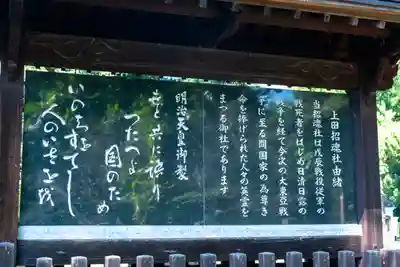 上田招魂社由緒
当招魂社は戊辰戦役従軍の
戦死者をはじめ日清日露の
戦争を経て今次の大東亜戦
争に至る間国家の為尊き
命を捧げられた人々の英霊を
まつる御社であります
明治天皇御製
もと共に語り
つたへよ
国のため
いのちをすてし
人のいさをを